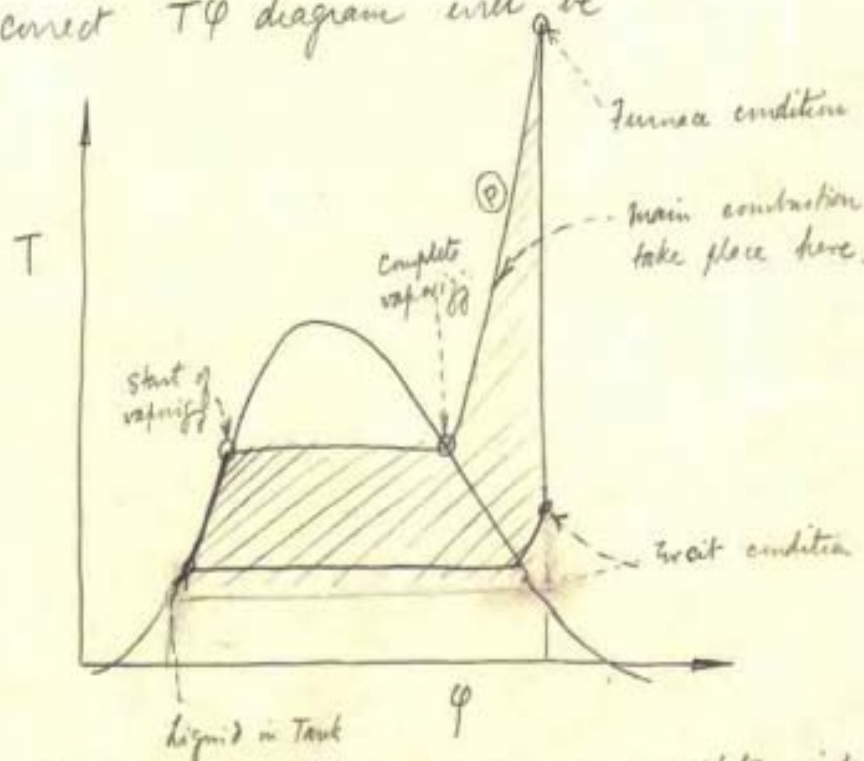 correct Tφ diagram will be
Furnace condition
P
main combustion
take place here.
T
Complete
start of
Exit condition
φ
Liquid in Tank